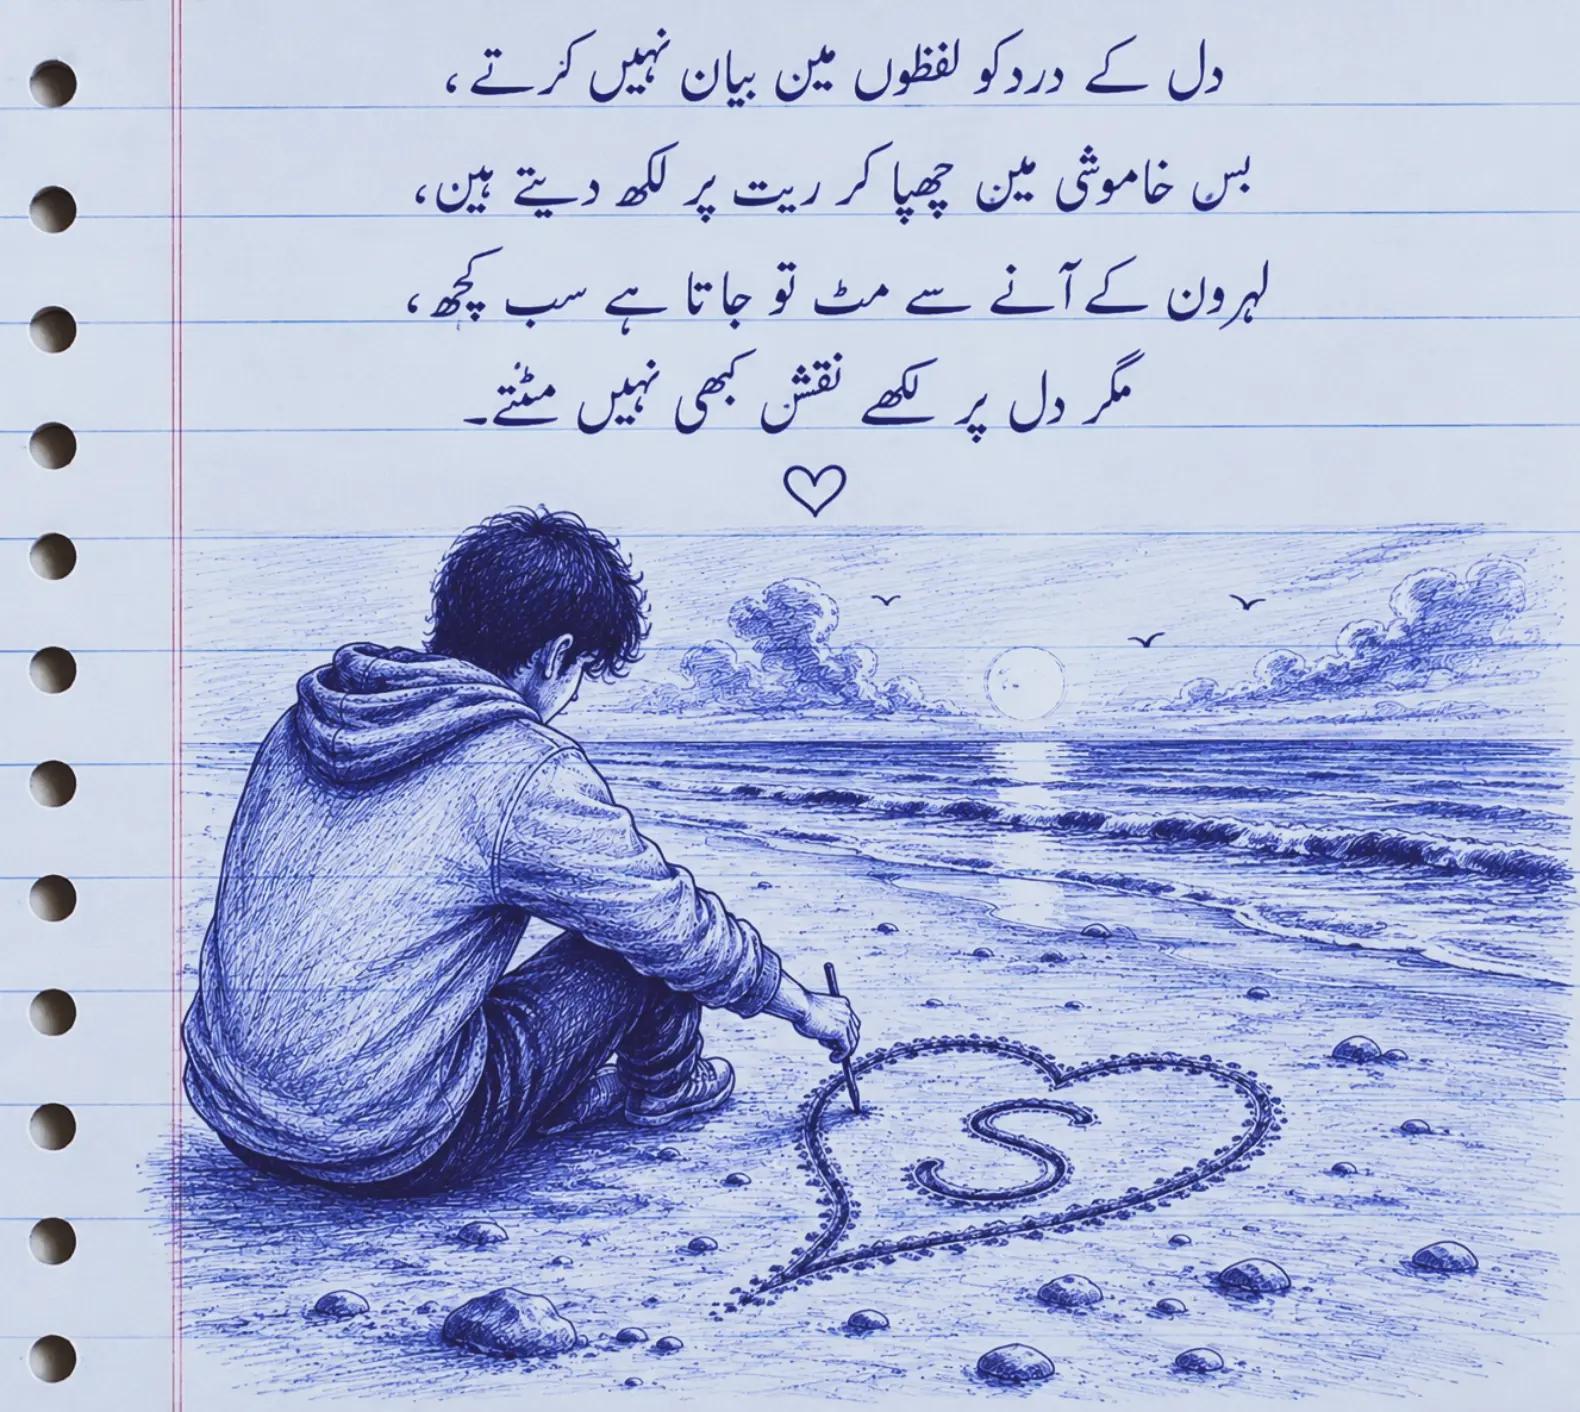 دل کے درد کو لفظوں مین بیان نہیں کرتے،
بس خاموشی مین چھپا کر ریت پر لکھ دیتے ہین،
لہرون کے آنے سے مٹ تو جاتا ہے سب کچھ،
مگر دل پر لکھے نقش کبھی نہیں مٹتے۔
S